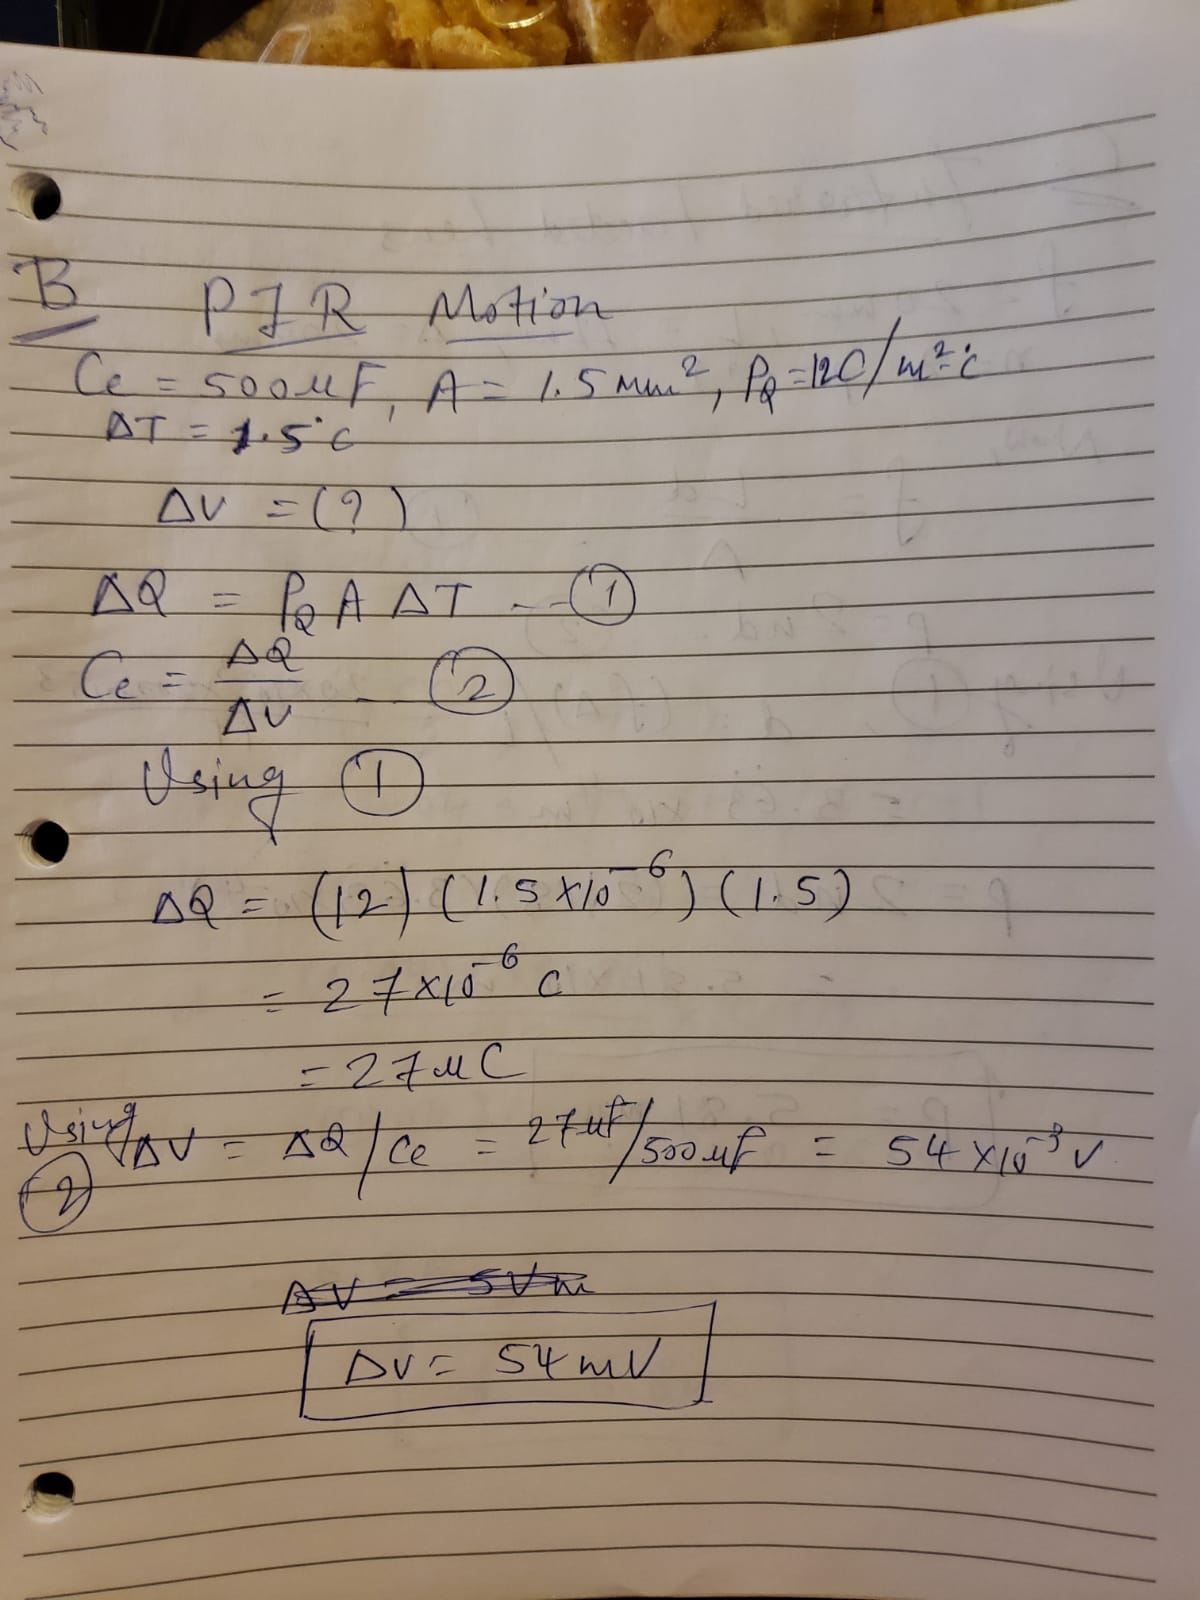 B PIR Motion
Ce = 500µF, A = 1.5 mm², P_Q = 12C/m²·°C
ΔT = 1.5°C
ΔV = (?)
ΔQ = P_Q A ΔT --- ①
Ce = ΔQ/ΔV --- ②
Using ①
ΔQ = (12) (1.5 x10⁻⁶) (1.5)
= 27x10⁻⁶ C
= 27µC
Using ② ΔV = ΔQ/Ce = 27µF/500µF = 54 x10⁻³ V
ΔV = 54mV